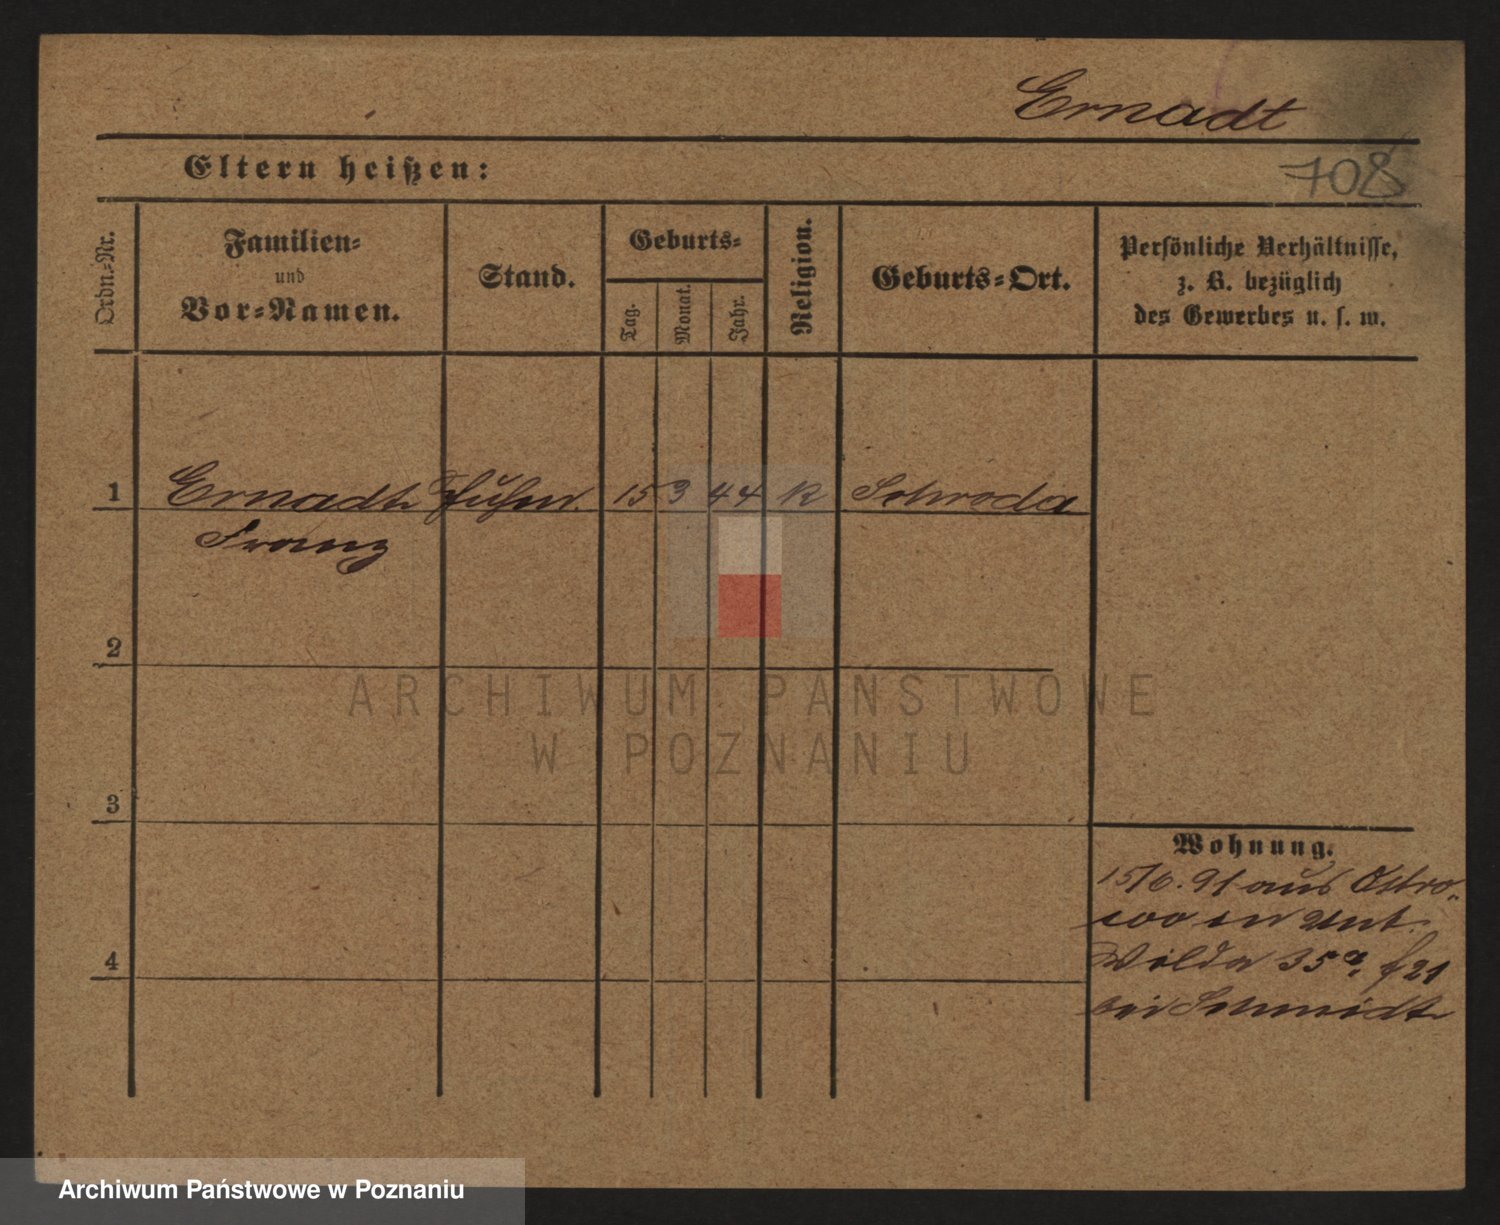 Ernadt
Eltern heißen:
708
Ordn.-Nr.
Familien-
und
Vor-Namen.
Stand.
Geburts-
Tag.
Monat.
Jahr.
Religion.
Geburts-Ort.
Persönliche Verhältnisse,
z. B. bezüglich
des Gewerbes u. s. w.
1 Ernadt 15 3 44 K Schroda
Franz
2
ARCHIWUM PAŃSTWOWE
W POZNANIU
3
Wohnung.
15/6. 91 aus Ostro-
wo in Unt.
4
Wilda 35a, f 21
bei Schmidt
Archiwum Państwowe w Poznaniu